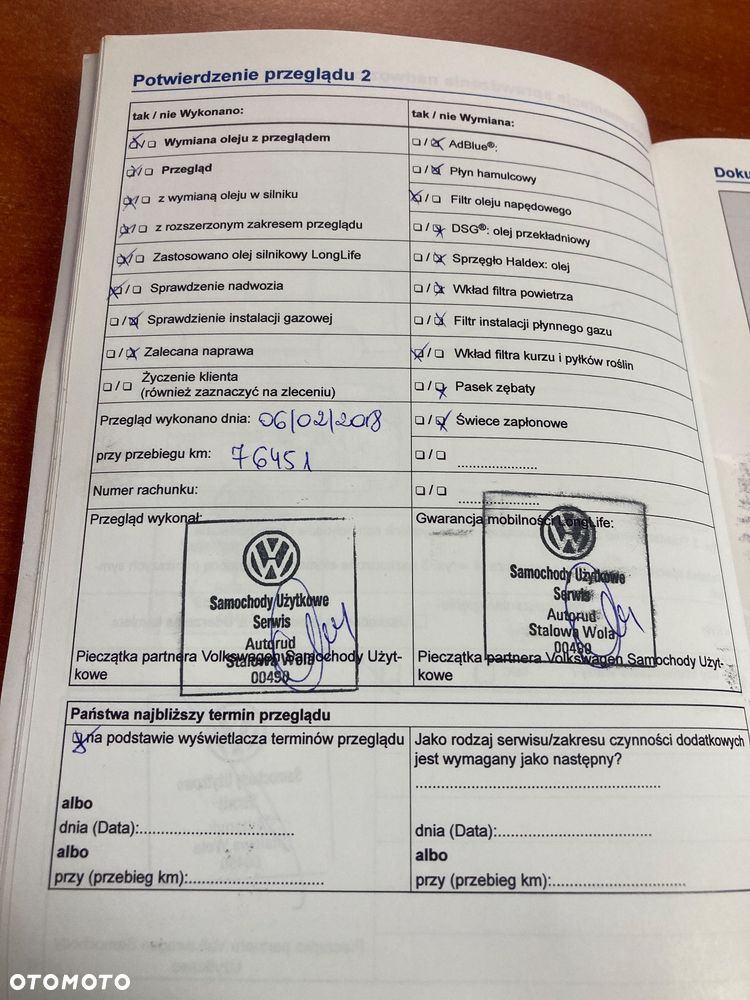 Potwierdzenie przeglądu 2
Doku
tak / nie Wykonano:
☒/☐ Wymiana oleju z przeglądem
☒/☐ Przegląd
☒/☐ z wymianą oleju w silniku
☒/☐ z rozszerzonym zakresem przeglądu
☒/☐ Zastosowano olej silnikowy LongLife
☒/☐ Sprawdzenie nadwozia
☐/☒ Sprawdzienie instalacji gazowej
☐/☒ Zalecana naprawa
☐/☐ Życzenie klienta
(również zaznaczyć na zleceniu)
Przegląd wykonano dnia: 06/02/2018
przy przebiegu km: 76451
Numer rachunku:
Przegląd wykonał:
Samochody Użytkowe
Serwis
Autorud
Stalowa Wola
00490
Pieczątka partnera Volkswagen Samochody Użyt-
kowe
tak / nie Wymiana:
☐/☒ AdBlue®:
☐/☒ Płyn hamulcowy
☒/☐ Filtr oleju napędowego
☐/☒ DSG®: olej przekładniowy
☐/☒ Sprzęgło Haldex: olej
☐/☒ Wkład filtra powietrza
☐/☒ Filtr instalacji płynnego gazu
☒/☐ Wkład filtra kurzu i pyłków roślin
☐/☒ Pasek zębaty
☐/☒ Świece zapłonowe
☐/☐ ......................
☐/☐ ......................
Gwarancja mobilności LongLife:
Samochody Użytkowe
Serwis
Autorud
Stalowa Wola
00490
Pieczątka partnera Volkswagen Samochody Użyt-
kowe
Państwa najbliższy termin przeglądu
☒ na podstawie wyświetlacza terminów przeglądu
albo
dnia (Data):..................................
albo
przy (przebieg km):..............................
Jako rodzaj serwisu/zakresu czynności dodatkowych
jest wymagany jako następny?
......................................................
dnia (Data):..................................
albo
przy (przebieg km):..............................
OTOMOTO